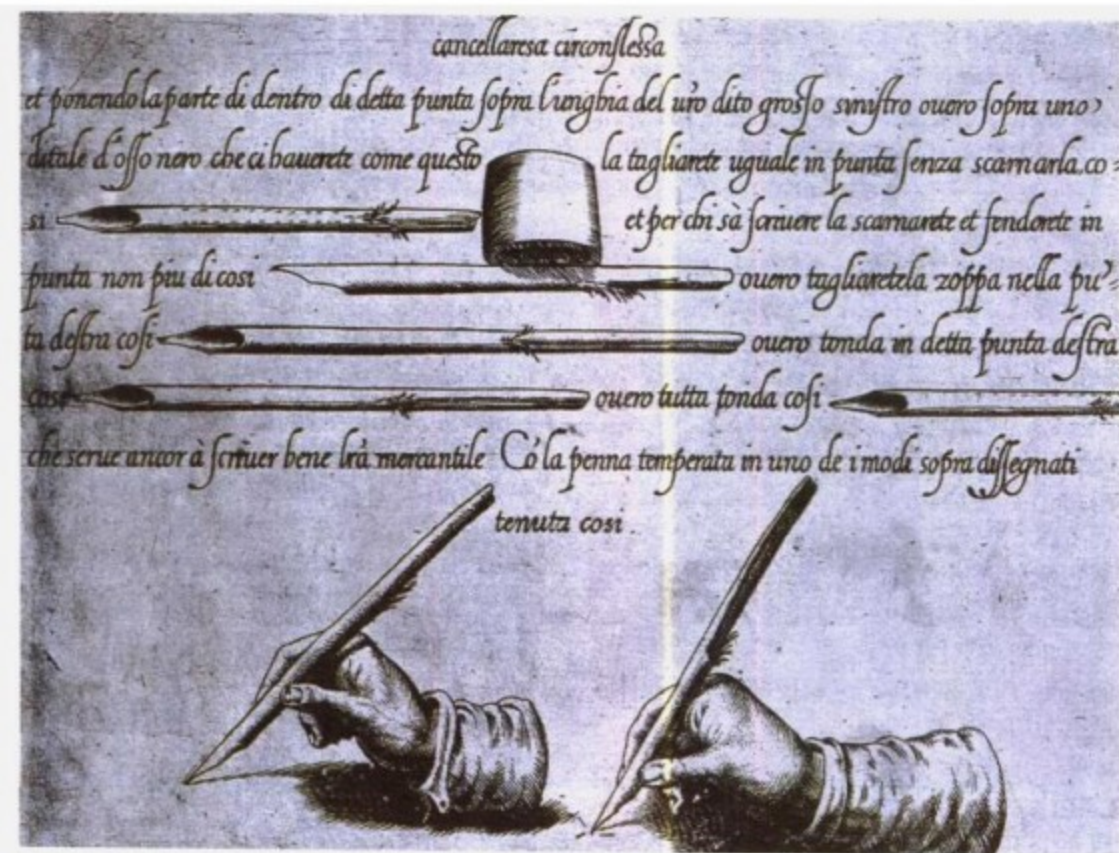 cancellaresca circonflessa
et ponendo la parte di dentro di detta punta sopra l'unghia del uro dito grosso sinistro ouero sopra uno
ditale d'osso nero che ci hauerete come questo la tagliarete uguale in punta senza scarnarla co-
si et per chi sà scriuere la scarnarete et fendorete in
punta non piu di cosi ouero tagliaretela zoppa nella pu-
ta destra cosi ouero tonda in detta punta destra
cosi ouero tutta tonda cosi
che serue ancor à scriuer bene lrà mercantile Cò la penna temperata in uno de i modi sopra dissegnati
tenuta cosi